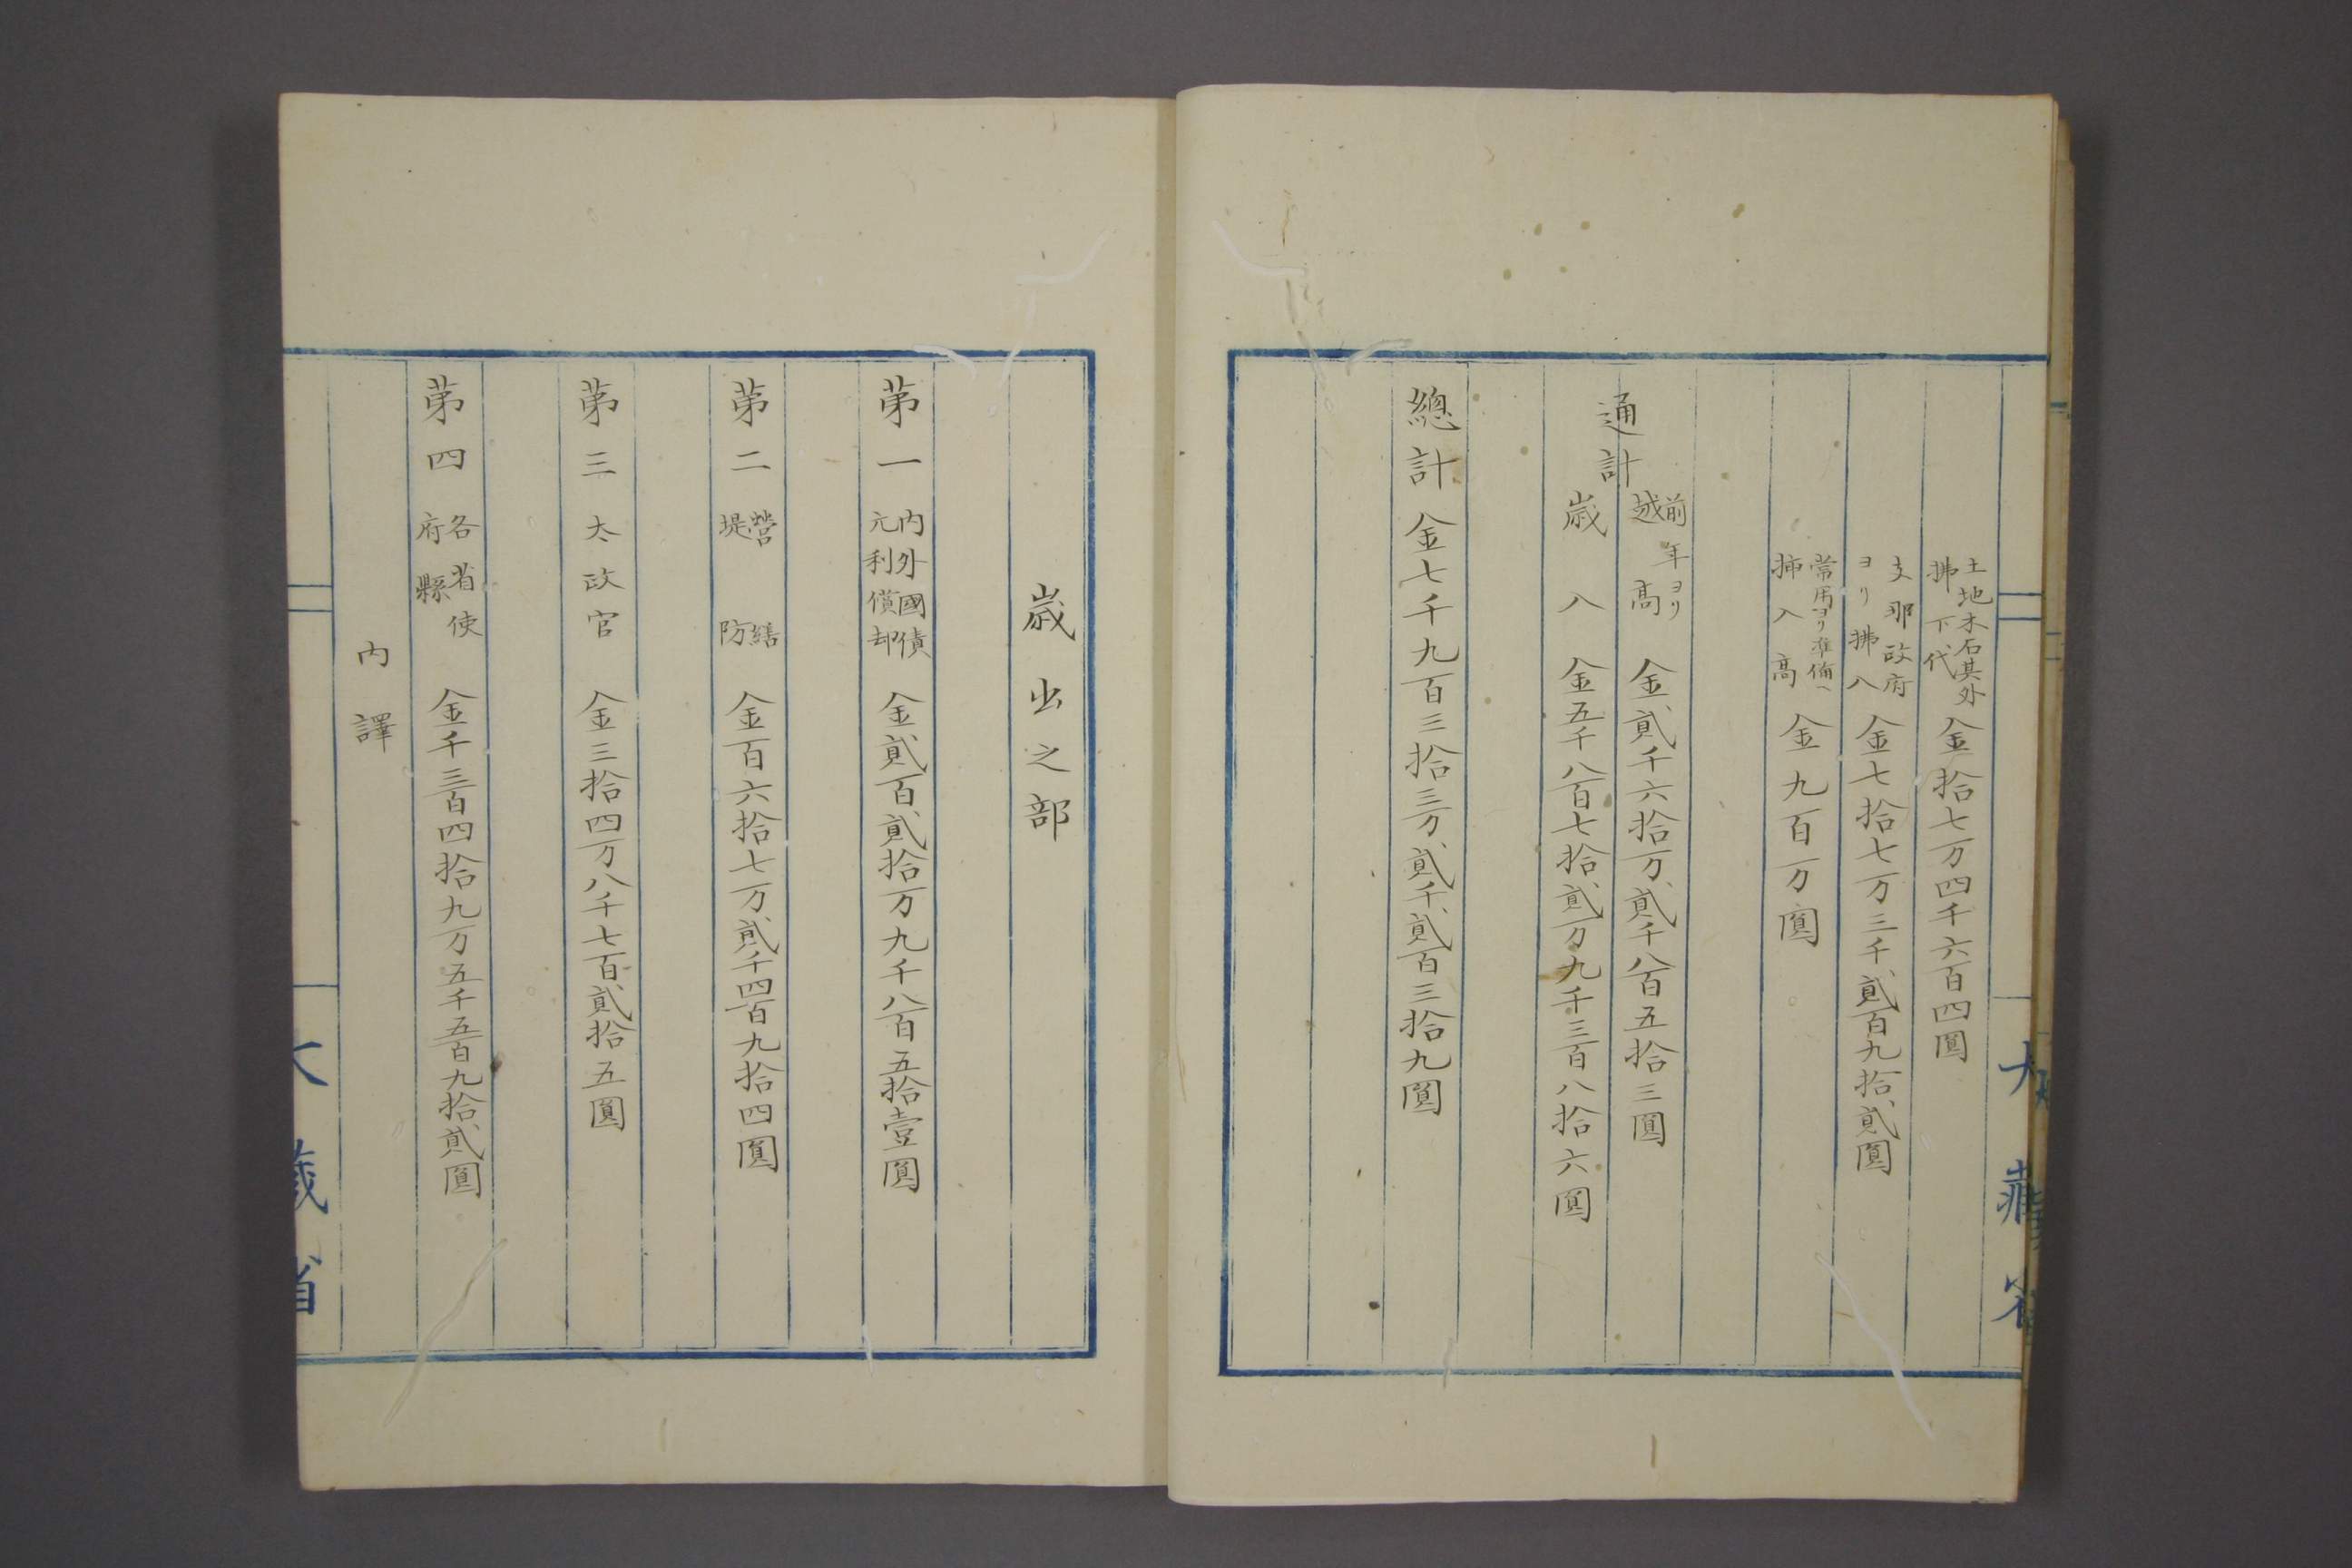 土地木石其外
拂下代
金拾七万四千六百四圓
支那政府
ヨリ拂入
金七拾七万三千貳百九拾貳圓
常用ヨリ準備ヘ
挿入高
金九百万圓
通計
前年ヨリ
越高
金貳千六拾万貳千八百五拾三圓
歳入
金五千八百七拾貳万九千三百八拾六圓
總計
金七千九百三拾三万貳千貳百三拾九圓
大藏省
歳出之部
第一
内外國債
元利償却
金貳百貳拾万九千八百五拾壹圓
第二
營繕
堤防
金百六拾七万貳千四百九拾四圓
第三
太政官
金三拾四万八千七百貳拾五圓
第四
各省使
府縣
金千三百四拾九万五千五百九拾貳圓
内譯
大藏省